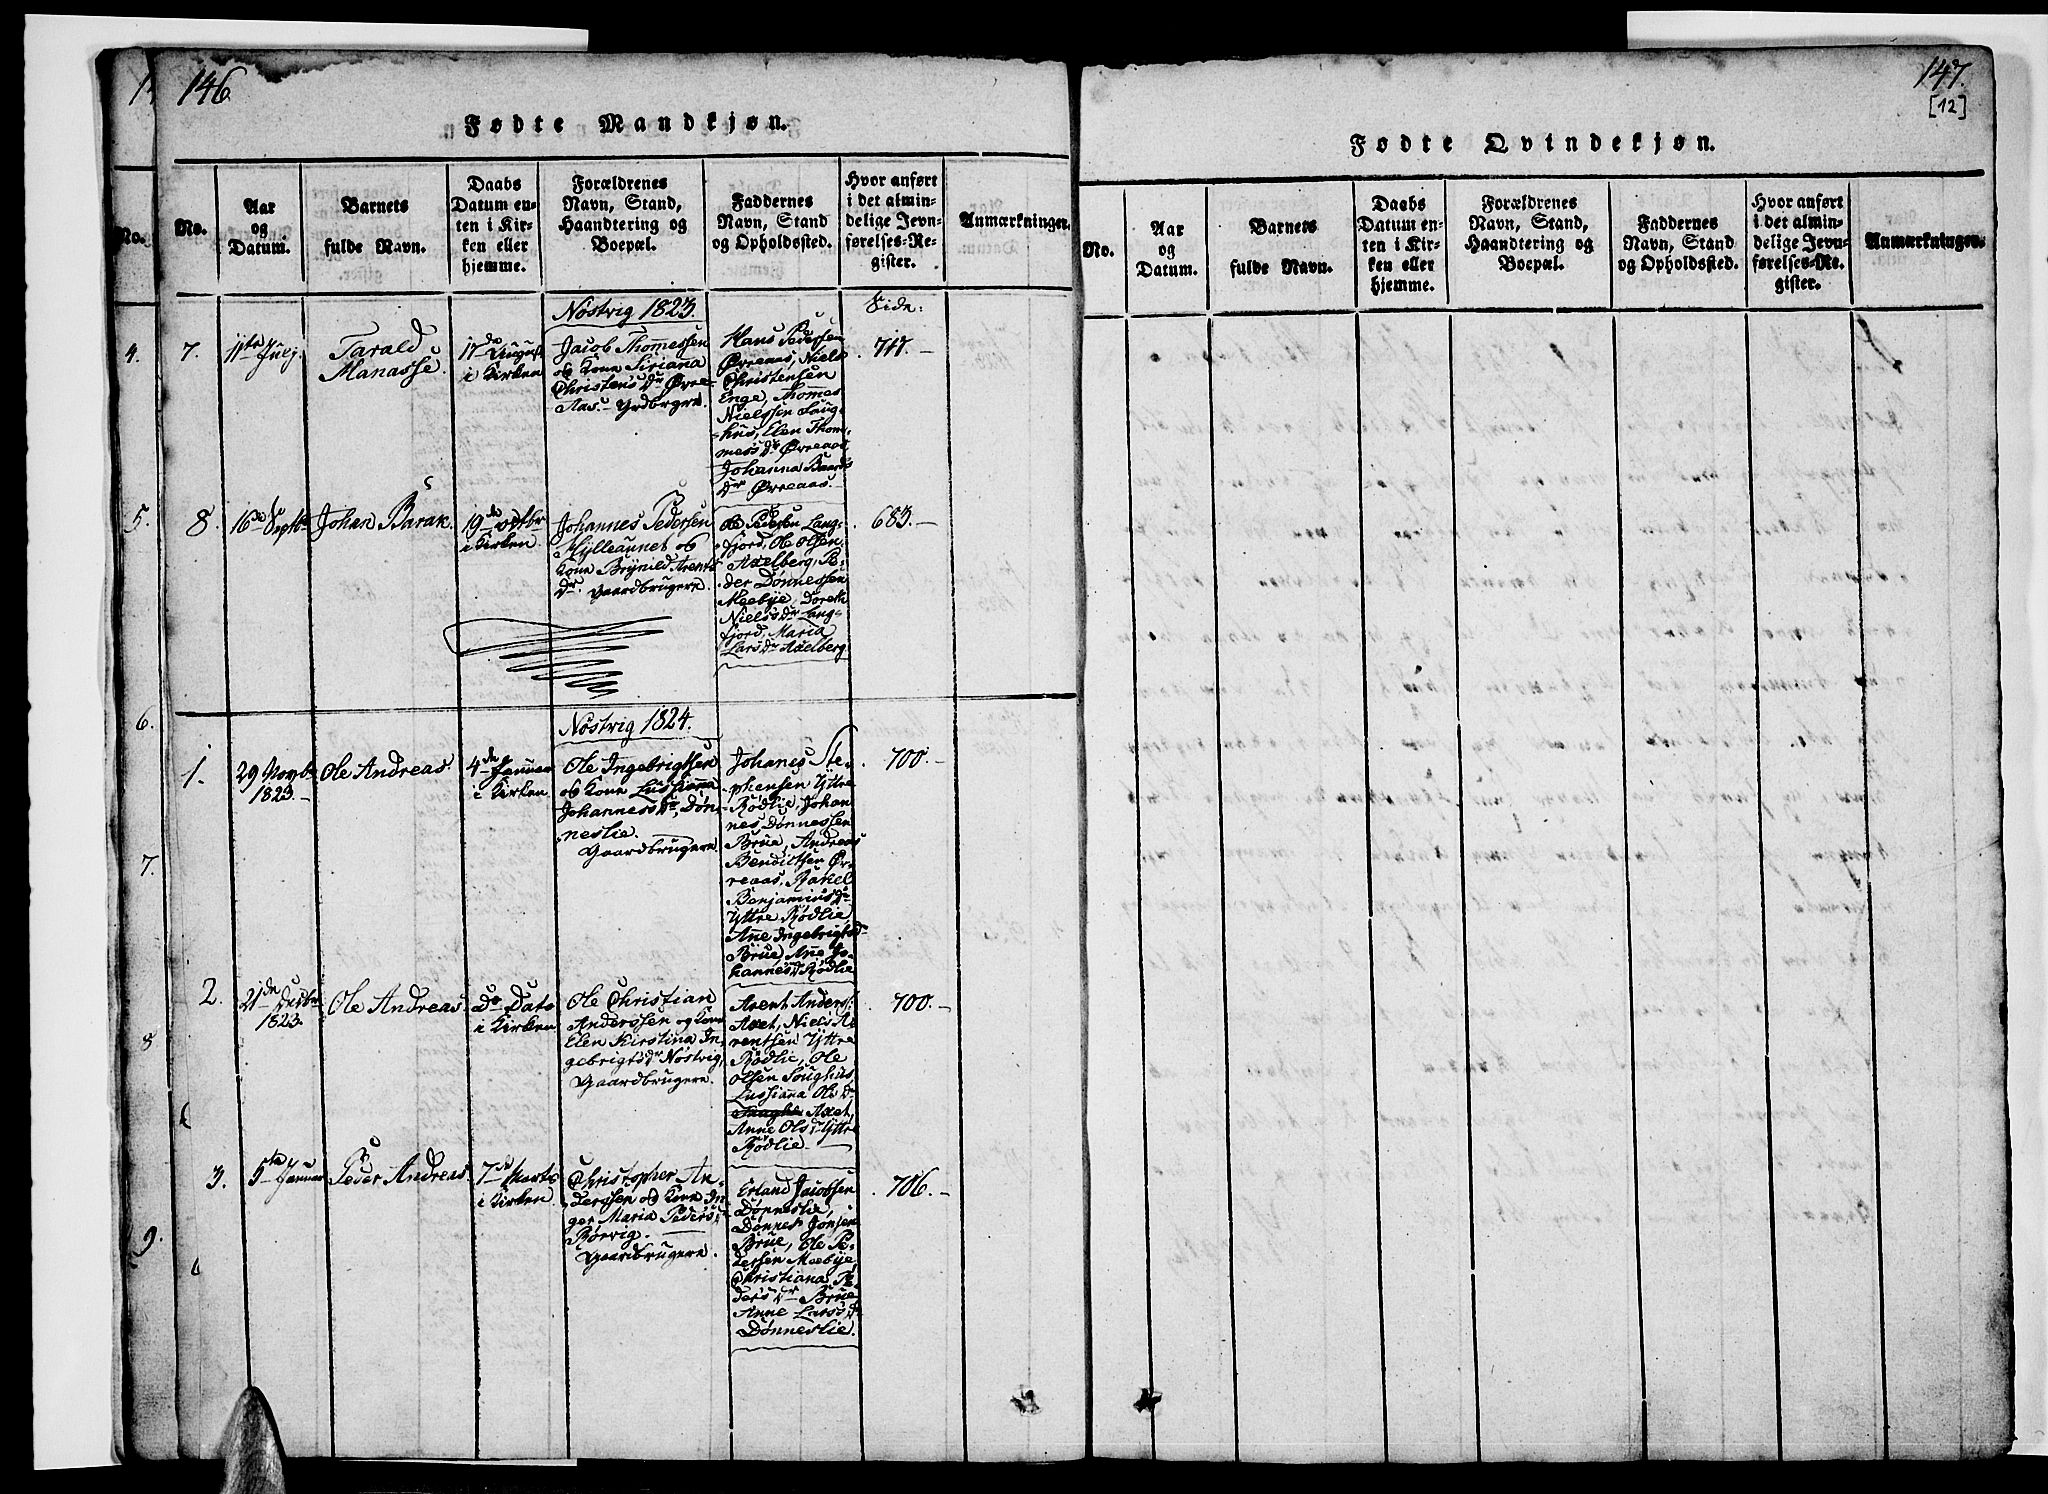 146
Fødte Mandkjøn.
No.
Aar
og
Datum.
Barnets
fulde Navn.
Daabs
Datum en-
ten i Kir-
ken eller
hjemme.
Forældrenes
Navn, Stand,
Haandtering og
Boepæl.
Faddernes
Navn, Stand
og Opholdssted.
Hvor anført
i det almin-
delige Jevn-
førelses-Re-
gister.
Anmærkninger.
Nöstvig 1823.
Side:
7.
11te Julj
Tarald
Manasse.
17de August
i Kirken
Jacob Thomessen
og Kone Siriana
Christens Dr Øvre-
Aas. - Grdbrgere.
Hans Pedersen
Øvreaas, Niels
Christensen
Enge, Thomes
Nielssen Saug-
hus, Elen Thom-
mess Dr Øvreaas
Johanna Baards
Dr Øvreaas.
717.-
8.
16de Septbr
Johan Barak.
19de octbr
i Kirken
Johannes Pedersen
Hylleaunet og
Kone Brynild Arents
Dr. Gaardbrugere.
Ole Pedersen Lang-
fjord, Ole Olsen
Axelberg, Pe-
der Dønnessen
Meebye, Doreth
Niels Dr Lang-
fjord, Maria
Lars Dr Axelberg
683.-
Nöstvig 1824.
1.
29 Novbr
1823.-
Ole Andreas.
4de Januar
i Kirken
Ole Ingebrigtsen
og Kone Lussianna
Johanness Dr, Døn-
neslie.
Gaardbrugere
Johanes Ste-
phensen Yttre
Rödlie, Johan-
nes Dønnessen
Brue, Andreas
Bendictsen Øv-
reaas, Rakel
Benjamins Dr
Yttre Rödlie
Anne Ingebrigts Dr
Brue, Ane Jo-
hannes Dr Rödlie
700.-
2.
21de Decbr
1823.
Ole Andreas.
Do Dato
i Kirken
Ole Christian
Anderssen og Kone
Elen Kirstina In-
gebrigts Dr Nöstvig,
Gaardbrugere.
Arent Anders:
Axet, Niels A-
rentsen Yttre
Rödlie, Ole
Olsen Soughus
Lussiana Ols Dr
Axet,
Anne Ols Dr Yttre
Rödlie.
700.-
3.
5te Januar
Peder Andreas.
7de Marts
i Kirken
Christopher An-
derssen og Kone In-
ger Maria Peders Dr
Börvig.
Gaardbrugere.
Erland Jacobsen
Dønneslie,
Dønnes Jonsen
Brue, Ole Pe-
dersen Meebye,
Christiana Pe-
ders Dr Brue
Anne Lars Dr
Dønneslie.
706.-
147.
[12]
Fødte Qvindekjøn.
No.
Aar
og
Datum.
Barnets
fulde Navn.
Daabs
Datum en-
ten i Kir-
ken eller
hjemme.
Forældrenes
Navn, Stand,
Haandtering og
Boepæl.
Faddernes
Navn, Stand
og Opholdssted.
Hvor anført
i det almin-
delige Jevn-
førelses-Re-
gister.
Anmærkninger.
No.
4.
5.
6.
7.
8
9.